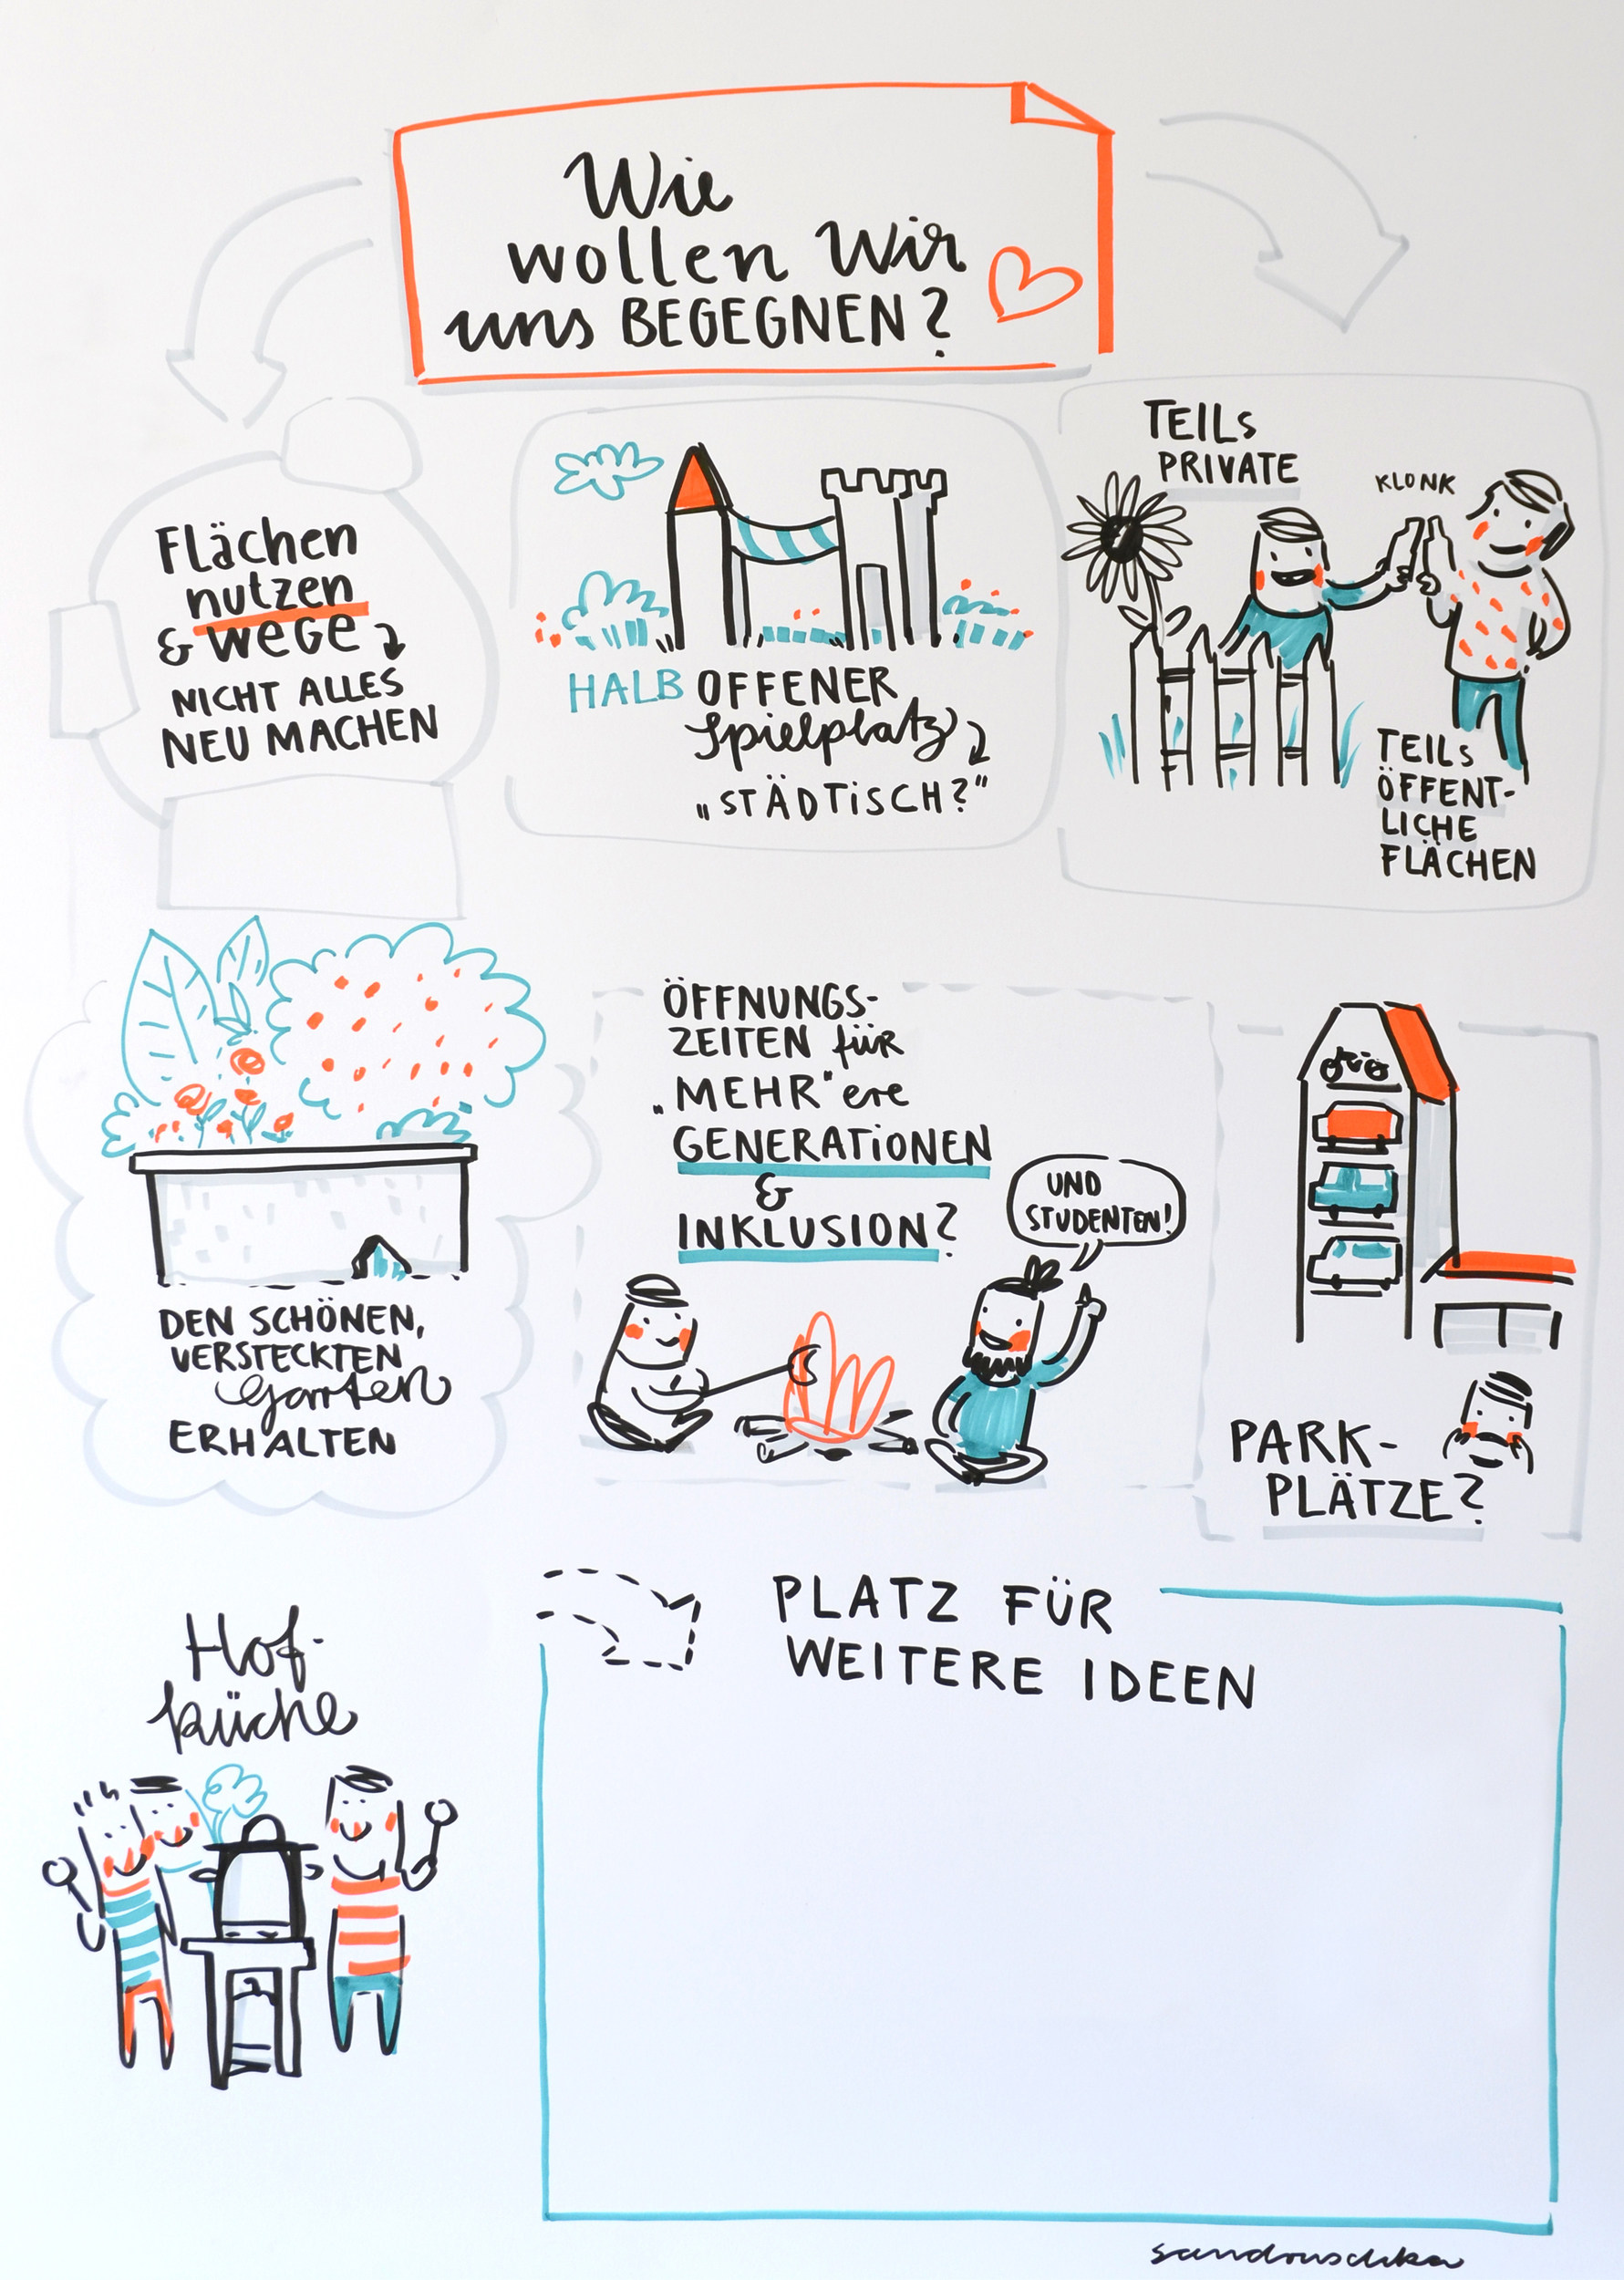 Wie
wollen wir
uns BEGEGNEN?
Flächen
nutzen
& WEGE
NICHT ALLES
NEU MACHEN
HALB OFFENER
Spielplatz
„STÄDTISCH?"
TEILS
PRIVATE
KLONK
TEILS
ÖFFENT-
LICHE
FLÄCHEN
DEN SCHÖNEN,
VERSTECKTEN
Garten
ERHALTEN
ÖFFNUNGS-
ZEITEN für
„MEHR"ere
GENERATIONEN
&
INKLUSION?
UND
STUDENTEN!
PARK-
PLÄTZE?
Hof-
küche
PLATZ FÜR
WEITERE IDEEN
sandruschka